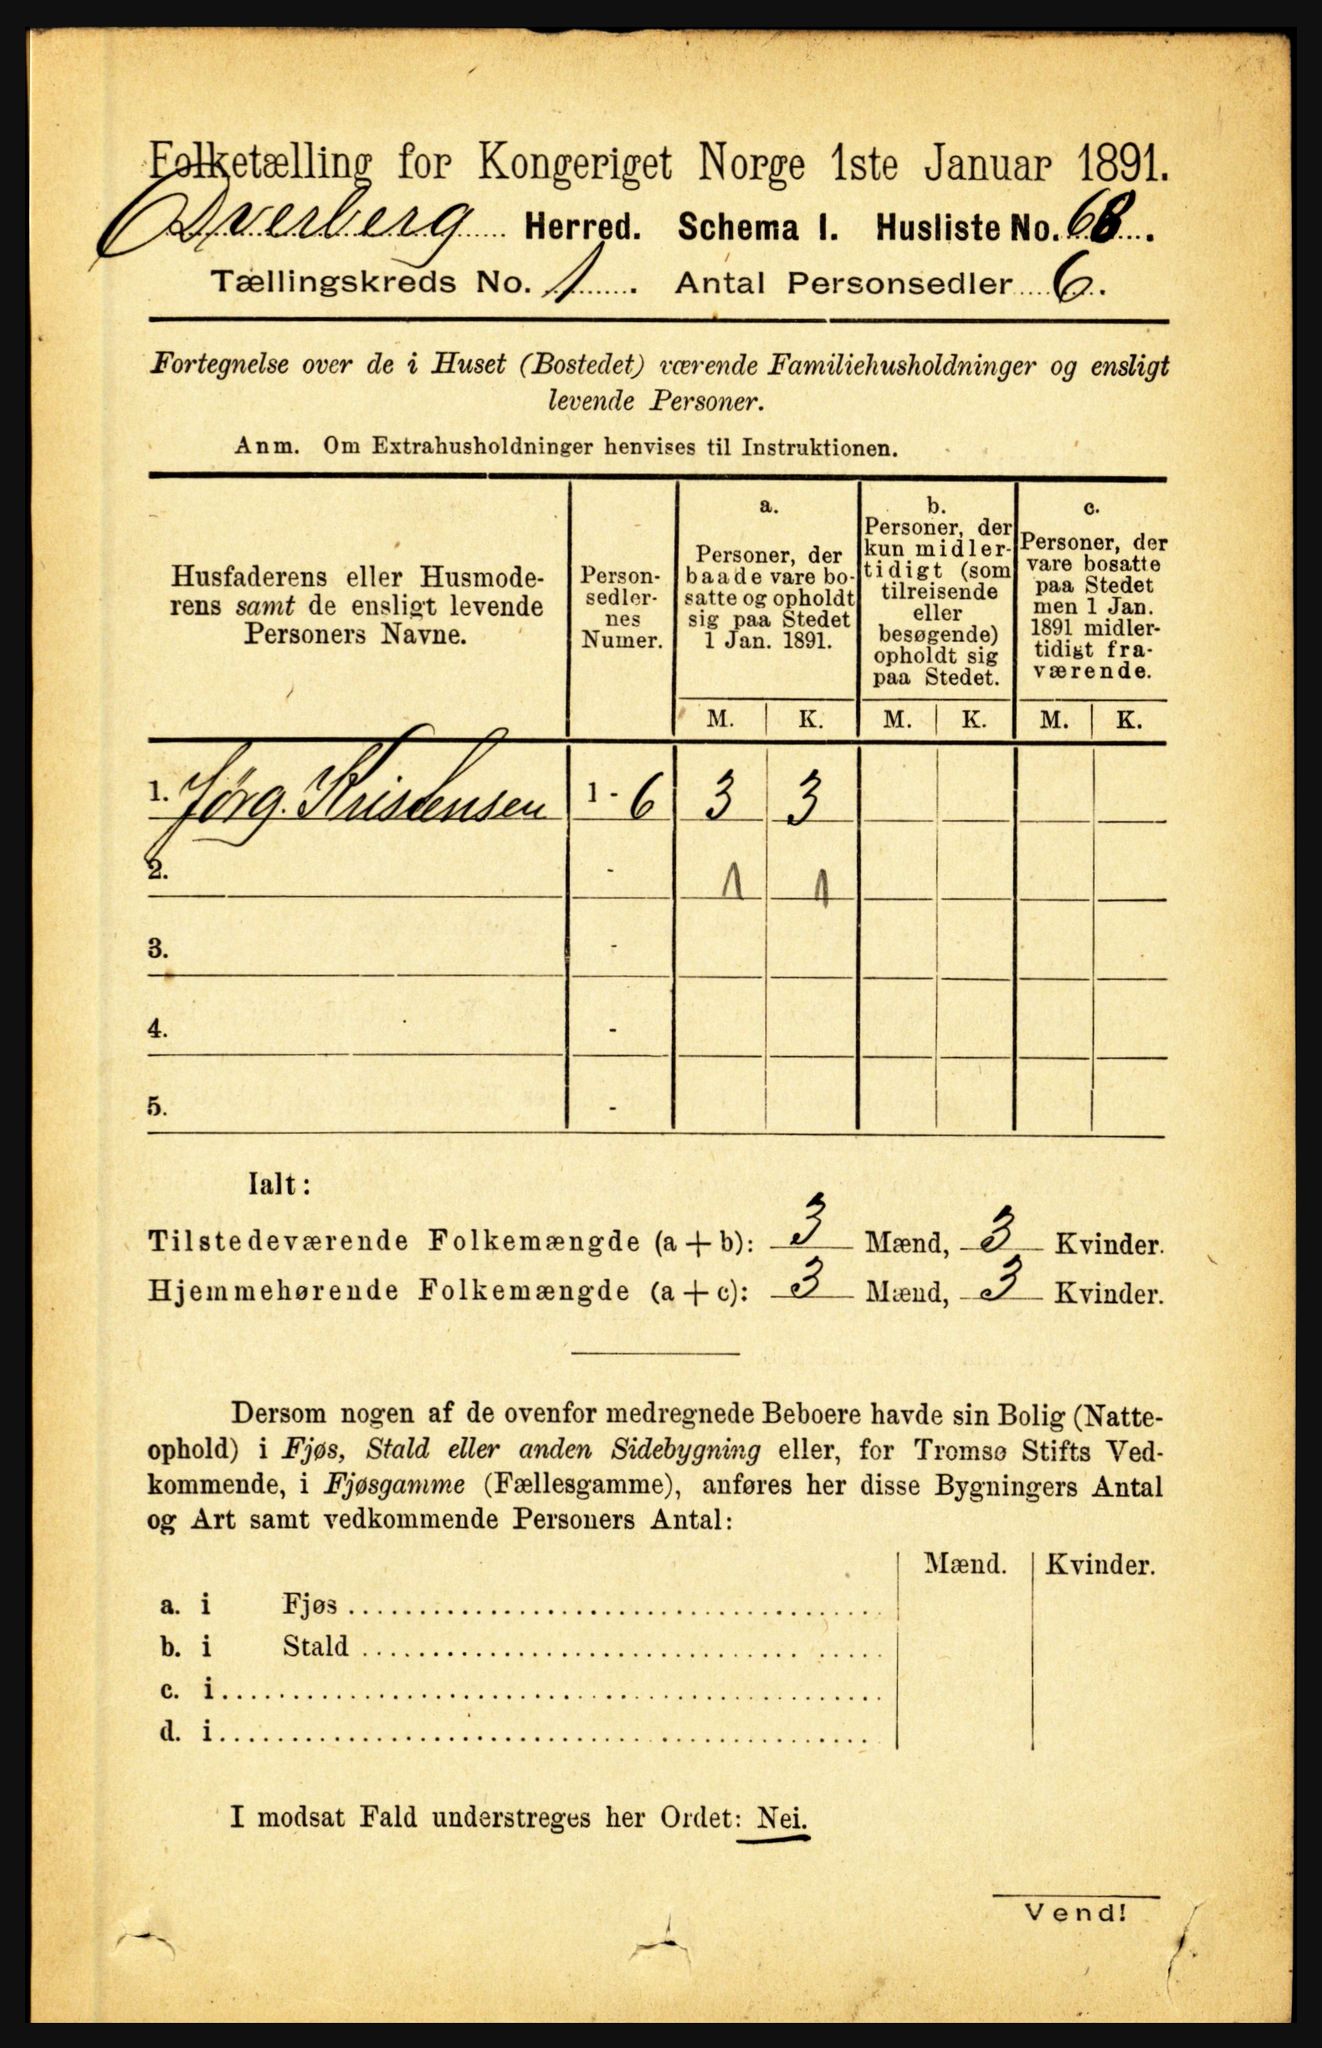 Folketælling for Kongeriget Norge 1ste Januar 1891.
Dverberg Herred. Schema I. Husliste No. 68.
Tællingskreds No. 1. Antal Personsedler 6.
Fortegnelse over de i Huset (Bostedet) værende Familiehusholdninger og ensligt
levende Personer.
Anm. Om Extrahusholdninger henvises til Instruktionen.
Husfaderens eller Husmode-
rens samt de ensligt levende
Personers Navne.
Person-
sedler-
nes
Numer.
a.
Personer, der
baade vare bo-
satte og opholdt
sig paa Stedet
1 Jan. 1891.
b.
Personer, der
kun midler-
tidigt (som
tilreisende
eller
besøgende)
opholdt sig
paa Stedet.
c.
Personer, der
vare bosatte
paa Stedet
men 1 Jan.
1891 midler-
tidigt fra-
værende.
M. K. M. K. M. K.
1. Jørg. Kristensen 1 - 6 3 3
2. - 1 1
3. -
4. -
5. -
Ialt:
Tilstedeværende Folkemængde (a + b): 3 Mænd, 3 Kvinder.
Hjemmehørende Folkemængde (a + c): 3 Mænd, 3 Kvinder.
Dersom nogen af de ovenfor medregnede Beboere havde sin Bolig (Natte-
ophold) i Fjøs, Stald eller anden Sidebygning eller, for Tromsø Stifts Ved-
kommende, i Fjøsgamme (Fællesgamme), anføres her disse Bygningers Antal
og Art samt vedkommende Personers Antal:
Mænd. Kvinder.
a. i Fjøs
b. i Stald
c. i
d. i
I modsat Fald understreges her Ordet: Nei.
Vend!